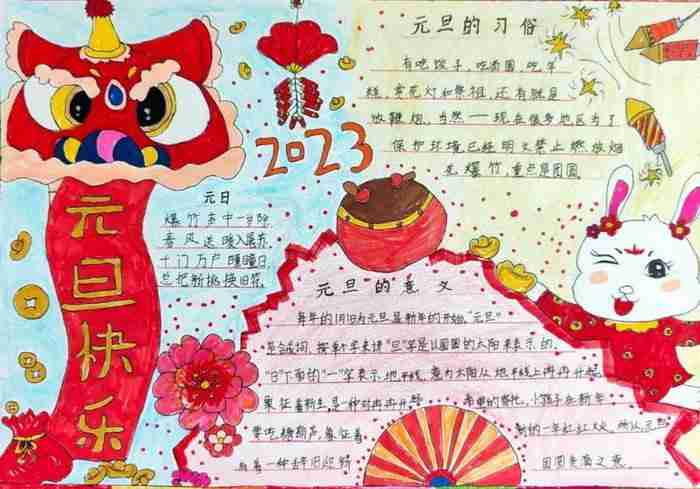 元旦快乐
2023
元旦的习俗
有吃饺子，吃汤圆，吃年
糕，赏花灯和祭祖，还有就是
放鞭炮，当然一一现在很多地区为了
保护环境已经明文禁止燃放烟
花爆竹，重点是团圆
元日
爆竹声中一岁除
春风送暖入屠苏
千门万户曈曈日
总把新桃换旧符
元旦的意义
每年的1月1日为元旦是新年的开始"元旦"
是合成词，按单个字来讲"旦"字是以圆圆的太阳来表示的.
"日"下面的"一"字表示地平线，意为太阳从地平线上冉冉升起
象征着新生是一种对冉冉升起
希望的寄托，小孩子在新年
要吃糖葫芦，象征着
新的一年红红火火，所以元旦
有着一种辞旧迎新
团圆美满之意.